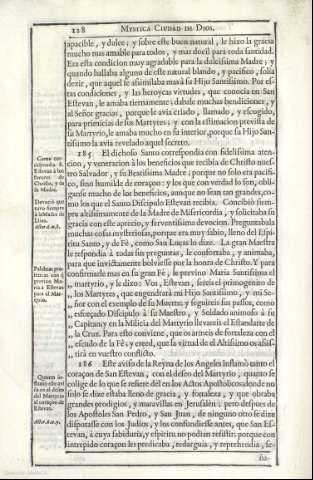 128 MYSTICA CIVDAD DE DIOS.
apacible, y dulce; y sobre este buen natural, le hizo la gracia
mucho mas amable para todos, y mas docil para toda santidad.
Era esta condicion muy agradable para la dulcissima Madre; y
quando hallaba alguno de este natural blando, y pacifico, solia
dezir, que aquel se assimilaba mas à su Hijo Santissimo. Por es-
tas condiciones, y las heroycas virtudes, que conocia en San
Estevan, le amaba tiernamente: dabale muchas bendiciones, y
al Señor gracias, porque le avia criado, llamado, y escogido,
para primicias de sus Martyres: y con la estimacion prevista de
su Martyrio, le amaba mucho en su interior, porque su Hijo San-
tissimo la avia revelado aquel secreto.
185 El dichoso Santo correspondia con fidelissima aten-
cion, y veneracion à los beneficios que recibia de Christo nues-
tro Salvador, y su Beatissima Madre; porque no solo era pacifi-
co, sino humilde de coraçon: y los que con verdad lo son, obli-
ganse mucho de los beneficios, aunque no sean tan grandes, co-
mo los que el Santo Discipulo Estevan recibia. Concibiò siem-
pre altissimamente de la Madre de Misericordia, y solicitaba su
gracia con este aprecio, y ferventissima devocion. Preguntabala
muchas cosas mysteriosas, porque era muy sabio, lleno del Espi-
ritu Santo, y de Fè, como San Lucas lo dize. La gran Maestra
le respondia à todas sus preguntas, le confortaba, y animaba,
para que invictamente bolviesse por la honra de Christo. Y para
confirmarle mas en su gran Fè, le previno Maria Santissima el
„ martyrio, y le dixo: Vos, Estevan, sereis el primogenito de
„ los Martyres, que engendrarà mi Hijo Santissimo, y mi Se-
„ ñor con el exemplo de su Muerte; y seguireis sus passos, como
„ esforçado Discipulo à su Maestro, y Soldado animoso à su
„ Capitan; y en la Milicia del Martyrio llevareis el Estandarte de
„ la Cruz. Para esto conviene, que os armeis de fortaleza con el
„ escudo de la Fè; y creed, que la virtud de el Altissimo os assis-
„ tirà en vuestro conflicto.
186 Este aviso de la Reyna de los Angeles inflamò tanto el
coraçon de San Estevan, con el deseo del Martyrio, quanto se
colige de lo que se refiere dèl en los Actos Apostolicos: donde no
solo se dize estaba lleno de gracia, y fortaleza, y que obraba
grandes prodigios, y maravillas en Jerusalèn; pero despues de
los Apostoles San Pedro, y San Juan, de ninguno otro se dize
disputasse con los Judios, y los confundiesse antes, que San Es-
tevan, à cuya sabiduria, y espiritu no podian resistir; porque con
intrepido coraçon les predicaba, redarguia, y reprehendia, se-
Como correspondia S. Estevan à los favores de Christo, y de la Madre.
Devocion que tuvo siempre à la Madre de Dios.